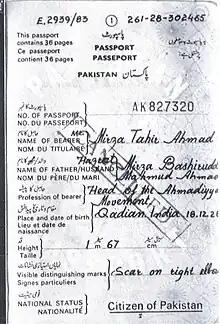 E.2939/83 1 261-28-302465
This passport
contains 36 pages
Ce passeport
contient 36 pages
پاسپورٹ
PASSPORT
PASSEPORT
PAKISTAN پاکستان
NO. OF PASSPORT
NO. DU PASSEPORT
AK827320
NAME OF BEARER Mirza Tahir Ahmad
NOM DU TITULAIRE
Hazrat Mirza Bashirudd
NAME OF FATHER/HUSBAND
NOM DU PÈRE/DU MARI Mahmud Ahmad
Profession of bearer Head of the Ahmadiyya
Movement
Place and date of birth Qadian India 18.12.28
Lieu et date de
naissance
Height 1 m 67 cm
Taille
Visible distinguishing marks Scar on right elbo
Signes particuliers
NATIONAL STATUS
NATIONALITÉ Citizen of Pakistan